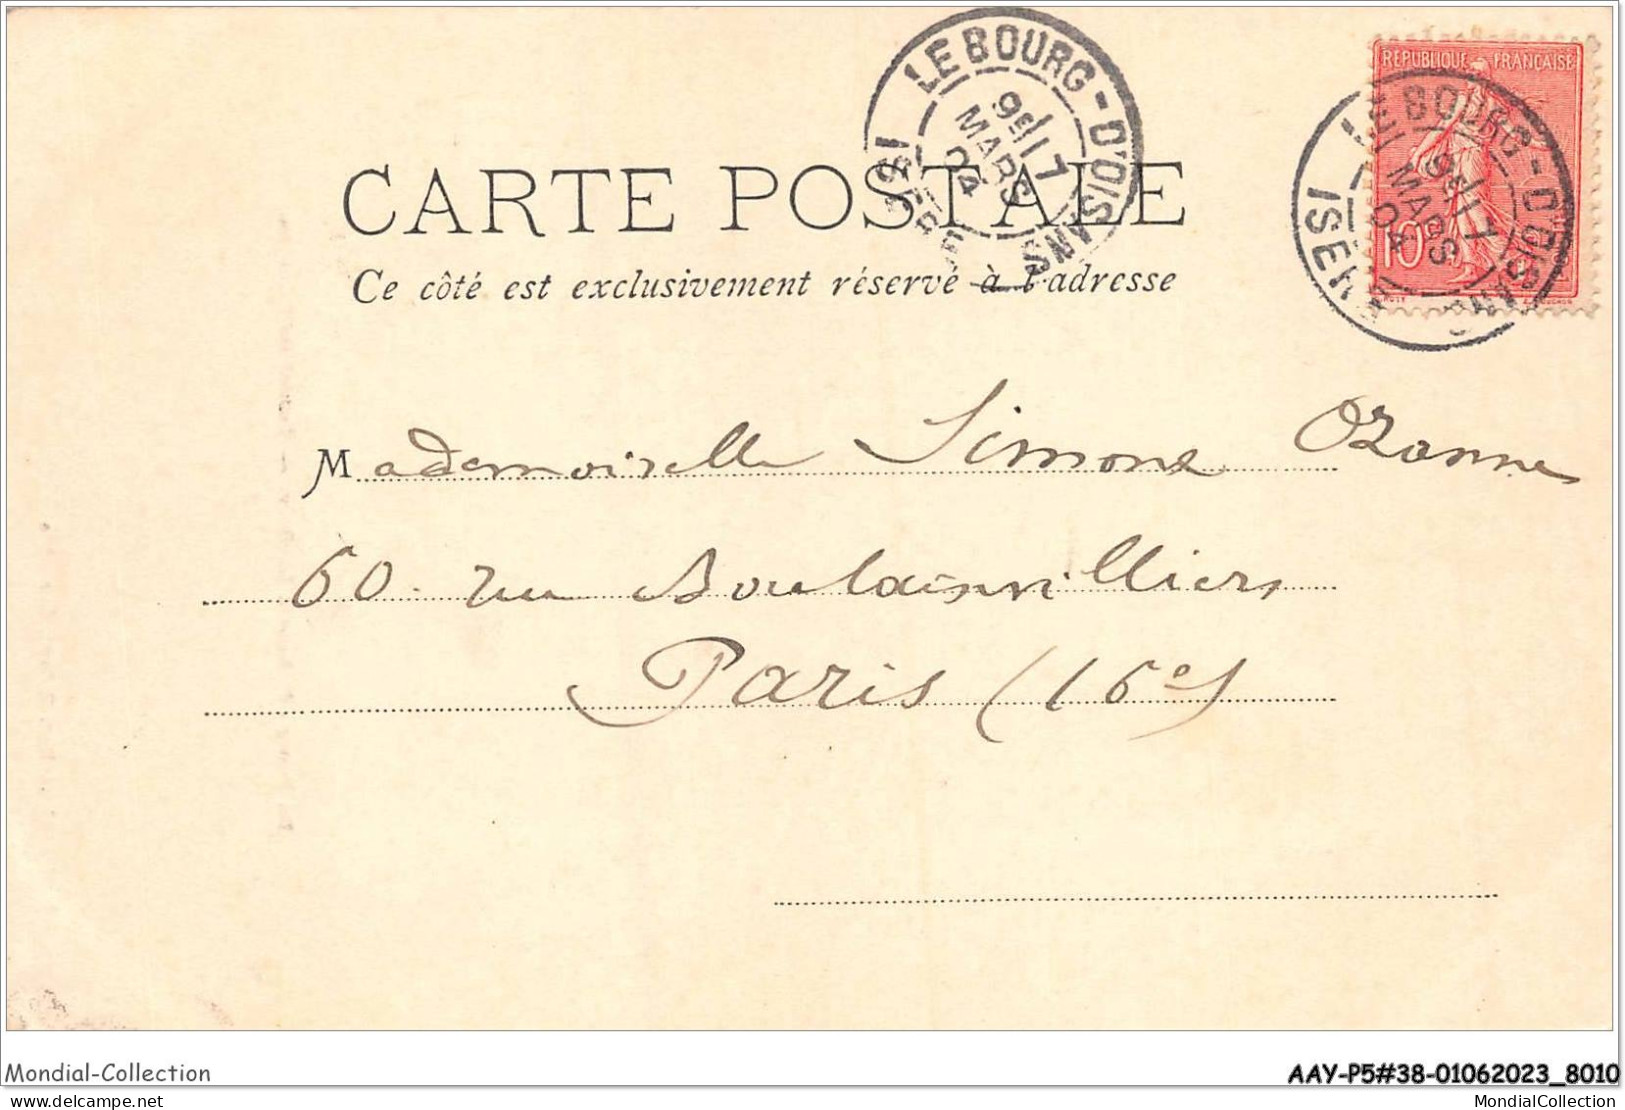 LE BOURG-D'OISANS
9E / 17
MARS
04
ISÈRE
REPUBLIQUE FRANÇAISE
LE BOURG-D'OISANS
9E / 17
MARS
04
ISÈRE
10
CARTE POSTALE
Ce côté est exclusivement réservé à l'adresse
Mademoiselle Simone Ozanne
60 rue Boulainvilliers
Paris (16e)
Mondial-Collection
AAY-P5#38-01062023_8010
www.delcampe.net
MondialCollection